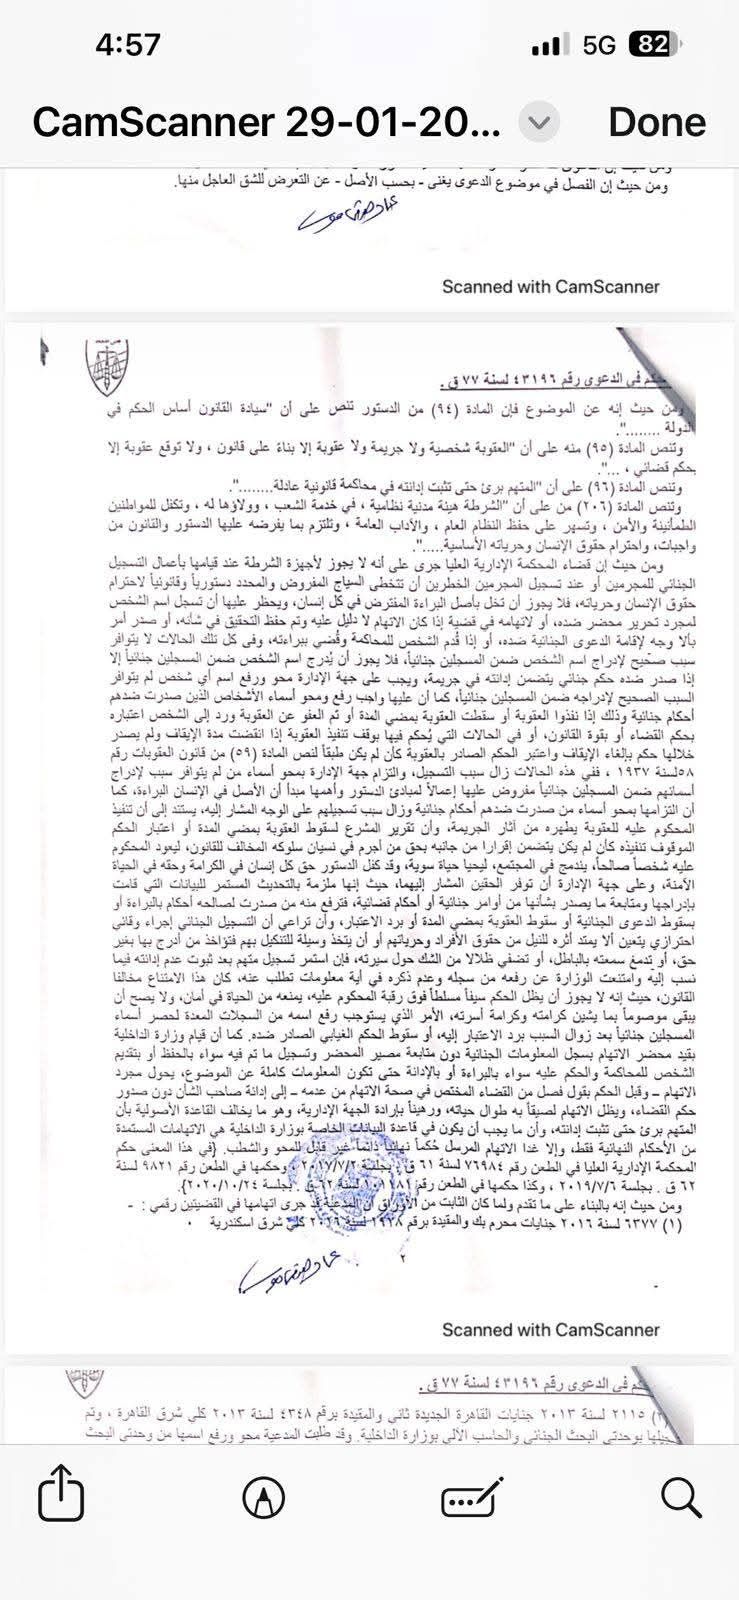 4:57
5G 82
CamScanner 29-01-20... Done
ومن حيث إن الفصل في موضوع الدعوى يغنى - بحسب الأصل - عن التعرض للشق العاجل منها.
Scanned with CamScanner
حكم في الدعوى رقم ٤٣١٩٦ لسنة ٧٧ ق .
ومن حيث إنه عن الموضوع فإن المادة (٩٤) من الدستور تنص على أن "سيادة القانون أساس الحكم في
الدولة ........".
وتنص المادة (٩٥) منه على أن "العقوبة شخصية ولا جريمة ولا عقوبة إلا بناءً على قانون ، ولا توقع عقوبة إلا
بحكم قضائي ، ...".
وتنص المادة (٩٦) على أن "المتهم برئ حتى تثبت إدانته في محاكمة قانونية عادلة........".
وتنص المادة (٢٠٦) من على أن "الشرطة هيئة مدنية نظامية ، في خدمة الشعب ، وولاؤها له ، وتكفل للمواطنين
الطمأنينة والأمن ، وتسهر على حفظ النظام العام ، والآداب العامة ، وتلتزم بما يفرضه عليها الدستور والقانون من
واجبات، واحترام حقوق الإنسان وحرياته الأساسية.....".
ومن حيث إن قضاء المحكمة الإدارية العليا جرى على أنه لا يجوز لأجهزة الشرطة عند قيامها بأعمال التسجيل
الجنائي للمجرمين أو عند تسجيل المجرمين الخطرين أن تتخطى السياج المفروض والمحدد دستورياً وقانونياً لاحترام
حقوق الإنسان وحرياته، فلا يجوز أن تخل بأصل البراءة المفترض في كل إنسان، ويحظر عليها أن تسجل اسم الشخص
لمجرد تحرير محضر ضده، أو لاتهامه في قضية إذا كان الاتهام لا دليل عليه وتم حفظ التحقيق في شأنه، أو صدر أمر
بألا وجه لإقامة الدعوى الجنائية ضده، أو إذا قُدم الشخص للمحاكمة وقُضي ببراءته، وفى كل تلك الحالات لا يتوافر
سبب صحيح لإدراج اسم الشخص ضمن المسجلين جنائياً، فلا يجوز أن يُدرج اسم الشخص ضمن المسجلين جنائياً إلا
إذا صدر ضده حكم جنائي يتضمن إدانته في جريمة، ويجب على جهة الإدارة محو ورفع اسم أي شخص لم يتوافر
السبب الصحيح لإدراجه ضمن المسجلين جنائياً، كما أن عليها واجب رفع ومحو أسماء الأشخاص الذين صدرت ضدهم
أحكام جنائية وذلك إذا نفذوا العقوبة أو سقطت العقوبة بمضي المدة أو تم العفو عن العقوبة ورد إلى الشخص اعتباره
بحكم القضاء أو بقوة القانون، أو في الحالات التي يُحكم فيها بوقف تنفيذ العقوبة إذا انقضت مدة الإيقاف ولم يصدر
خلالها حكم بإلغاء الإيقاف واعتبر الحكم الصادر بالعقوبة كأن لم يكن طبقاً لنص المادة (٥٩) من قانون العقوبات رقم
٥٨لسنة ١٩٣٧ ، ففي هذه الحالات زال سبب التسجيل، والتزام جهة الإدارة بمحو أسماء من لم يتوافر سبب لإدراج
أسمائهم ضمن المسجلين جنائياً مفروض عليها إعمالاً لمبادئ الدستور وأهمها مبدأ أن الأصل في الإنسان البراءة، كما
أن التزامها بمحو أسماء من صدرت ضدهم أحكام جنائية وزال سبب تسجيلهم على الوجه المشار إليه، يستند إلى أن تنفيذ
المحكوم عليه للعقوبة يطهره من آثار الجريمة، وأن تقرير المشرع لسقوط العقوبة بمضي المدة أو اعتبار الحكم
الموقوف تنفيذه كأن لم يكن يتضمن إقرارا من جانبه بحق من أجرم في نسيان سلوكه المخالف للقانون، ليعود المحكوم
عليه شخصاً صالحاً، يندمج في المجتمع، ليحيا حياة سوية، وقد كفل الدستور حق كل إنسان في الكرامة وحقه في الحياة
الآمنة، وعلى جهة الإدارة أن توفر الحقين المشار إليهما، حيث إنها ملزمة بالتحديث المستمر للبيانات التي قامت
بإدراجها ومتابعة ما يصدر بشأنها من أوامر جنائية أو أحكام قضائية، فترفع منه من صدرت لصالحه أحكام بالبراءة أو
بسقوط الدعوى الجنائية أو سقوط العقوبة بمضي المدة أو برد الاعتبار، وأن تراعي أن التسجيل الجنائي إجراء وقائي
احترازي يتعين ألا يمتد أثره للنيل من حقوق الأفراد وحرياتهم أو أن يتخذ وسيلة للتنكيل بهم فتؤاخذ من أدرج بها بغير
حق، أو تدمغ سمعته بالباطل، أو تضفي ظلالا من الشك حول سيرته، فإن استمر تسجيل متهم بعد ثبوت عدم إدانته فيما
نسب إليه وامتنعت الوزارة عن رفعه من سجله وعدم ذكره في أية معلومات تطلب عنه، كان هذا الامتناع مخالفا
القانون، حيث إنه لا يجوز أن يظل الحكم سيفاً مسلطاً فوق رقبة المحكوم عليه، يمنعه من الحياة في أمان، ولا يصح أن
يبقى موصوماً بما يشين كرامته وكرامة أسرته، الأمر الذي يستوجب رفع اسمه من السجلات المعدة لحصر أسماء
المسجلين جنائياً بعد زوال السبب برد الاعتبار إليه، أو سقوط الحكم الغيابي الصادر ضده. كما أن قيام وزارة الداخلية
بقيد محضر الاتهام بسجل المعلومات الجنائية دون متابعة مصير المحضر وتسجيل ما تم فيه سواء بالحفظ أو بتقديم
الشخص للمحاكمة والحكم عليه سواء بالبراءة أو بالإدانة حتى تكون المعلومات كاملة عن الموضوع، يحول مجرد
الاتهام – وقبل الحكم بقول فصل من القضاء المختص في صحة الاتهام من عدمه – إلى إدانة صاحب الشأن دون صدور
حكم القضاء، ويظل الاتهام لصيقاً به طوال حياته، ورهيناً بإرادة الجهة الإدارية، وهو ما يخالف القاعدة الأصولية بأن
المتهم برئ حتى تثبت إدانته، وأن ما يجب أن يكون في قاعدة البيانات الخاصة بوزارة الداخلية هي الاتهامات المستمدة
من الأحكام النهائية فقط، وإلا غدا الاتهام المرسل حُكماً نهائياً دائماً غير قابل للمحو والشطب. {في هذا المعنى حكم
المحكمة الإدارية العليا في الطعن رقم ٧٦٩٨٤ لسنة ٦١ ق . بجلسة ٢٠١٧/٧/٢ ، وحكمها في الطعن رقم ٩٨٢١ لسنة
٦٢ ق . بجلسة ٢٠١٩/٧/٦ ، وكذا حكمها في الطعن رقم ١٠١١٨١ لسنة ٦٢ ق . بجلسة ٢٠٢٠/١٠/٢٤}.
ومن حيث إنه بالبناء على ما تقدم ولما كان الثابت من الأوراق أن المدعية قد جرى اتهامها في القضيتين رقمي : -
(١) ٦٣٧٧ لسنة ٢٠١٦ جنايات محرم بك والمقيدة برقم ١٩٢٨ لسنة ٢٠١٦ كلي شرق اسكندرية .
٢
Scanned with CamScanner
حكم في الدعوى رقم ٤٣١٩٦ لسنة ٧٧ ق .
(٢) ٢١١٥ لسنة ٢٠١٣ جنايات القاهرة الجديدة ثاني والمقيدة برقم ٤٣٤٨ لسنة ٢٠١٣ كلي شرق القاهرة ، وتم
تسجيلها بوحدتي البحث الجنائي والحاسب الآلي بوزارة الداخلية. وقد طلبت المدعية محو ورفع اسمها من وحدتي البحث